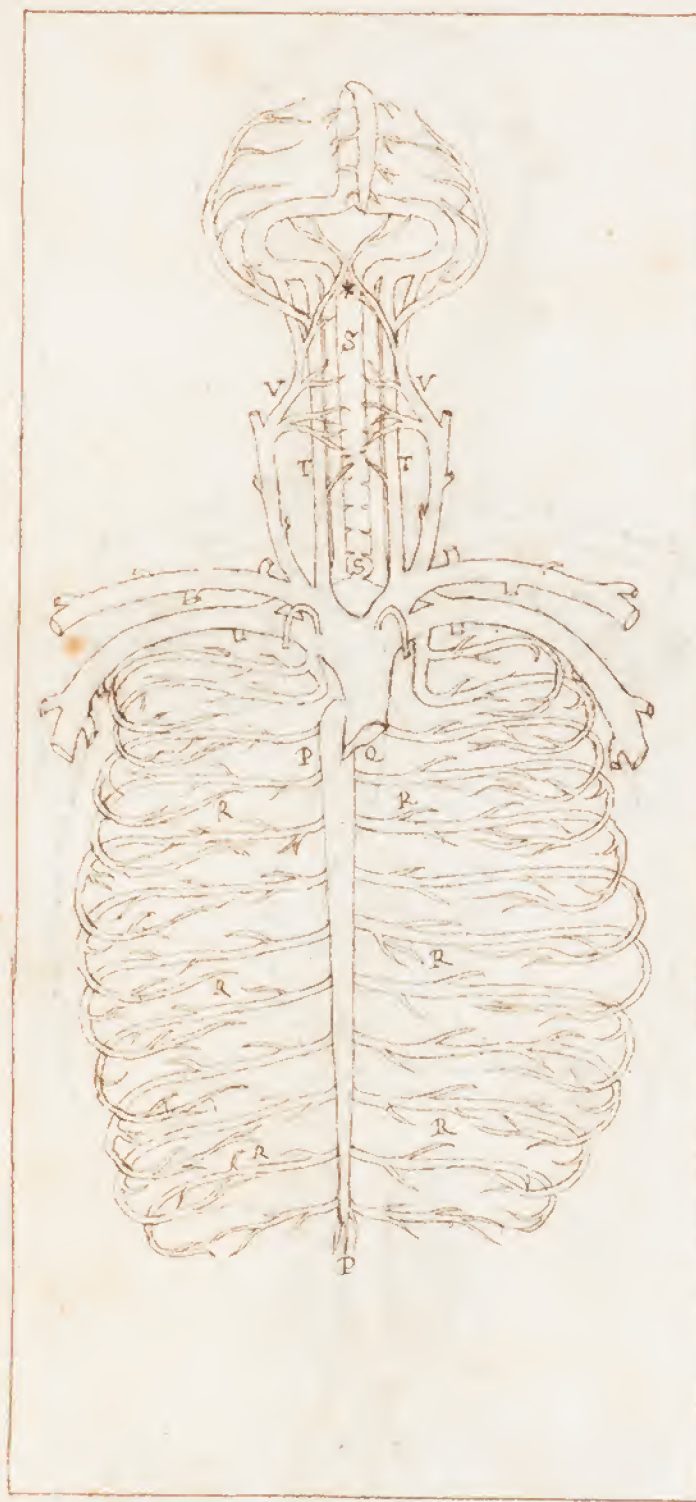 *
S
V V
T T
S
P Q
R R
R R
R
R
P